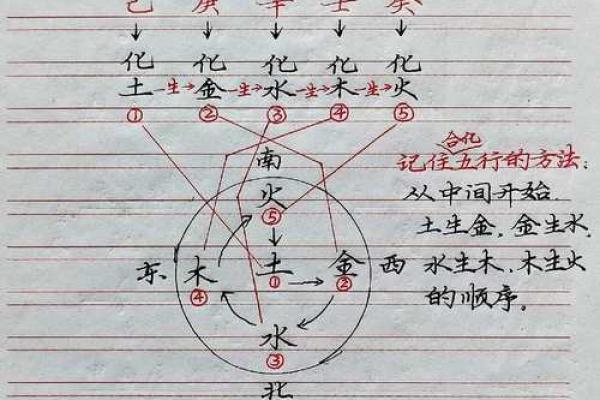 己 庚 辛 壬 癸
化 化 化 化 化
土 生 金 生 水 生 木 生 火
① ② ③ ④ ⑤
南
火
⑤
东 木 土 金 西
④ ① ②
水
③
北
合化
记住五行的方法:
从中间开始.
土生金,金生水,
水生木,木生火
的顺序。